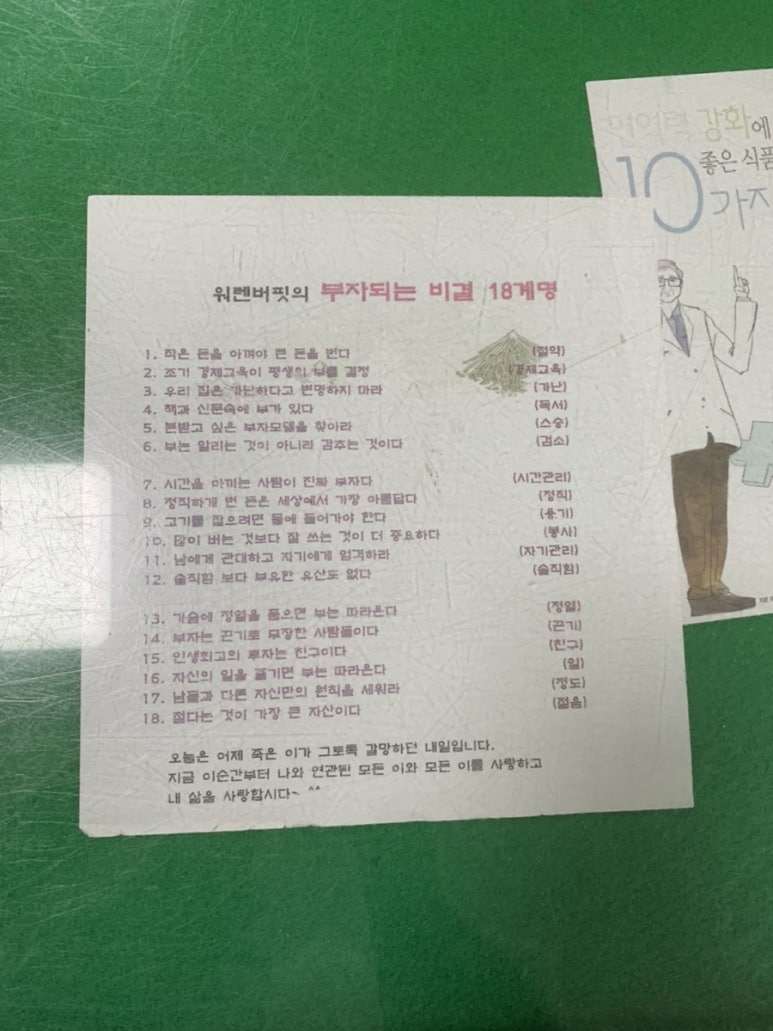 면역력 강화에
좋은 식품
10가지
워렌버핏의 부자되는 비결 18계명
1. 작은 돈을 아껴야 큰 돈을 번다 (절약)
2. 조기 경제교육이 평생의 부를 결정 (경제교육)
3. 우리 집은 가난하다고 변명하지 마라 (가난)
4. 책과 신문속에 부가 있다 (독서)
5. 본받고 싶은 부자모델을 찾아라 (스승)
6. 부는 알리는 것이 아니라 감추는 것이다 (검소)
7. 시간을 아끼는 사람이 진짜 부자다 (시간관리)
8. 정직하게 번 돈은 세상에서 가장 아름답다 (정직)
9. 고기를 잡으려면 물에 들어가야 한다 (용기)
10. 많이 버는 것보다 잘 쓰는 것이 더 중요하다 (봉사)
11. 남에게 관대하고 자기에게 엄격하라 (자기관리)
12. 솔직함 보다 부유한 유산도 없다 (솔직함)
13. 가슴에 정열을 품으면 부는 따라온다 (정열)
14. 부자는 끈기로 무장한 사람들이다 (끈기)
15. 인생최고의 투자는 친구이다 (친구)
16. 자신의 일을 즐기면 부는 따라온다 (일)
17. 남들과 다른 자신만의 원칙을 세워라 (정도)
18. 젊다는 것이 가장 큰 자산이다 (젊음)
오늘은 어제 죽은 이가 그토록 갈망하던 내일입니다.
지금 이순간부터 나와 연관된 모든 이와 모든 이를 사랑하고
내 삶을 사랑합시다~ ^^